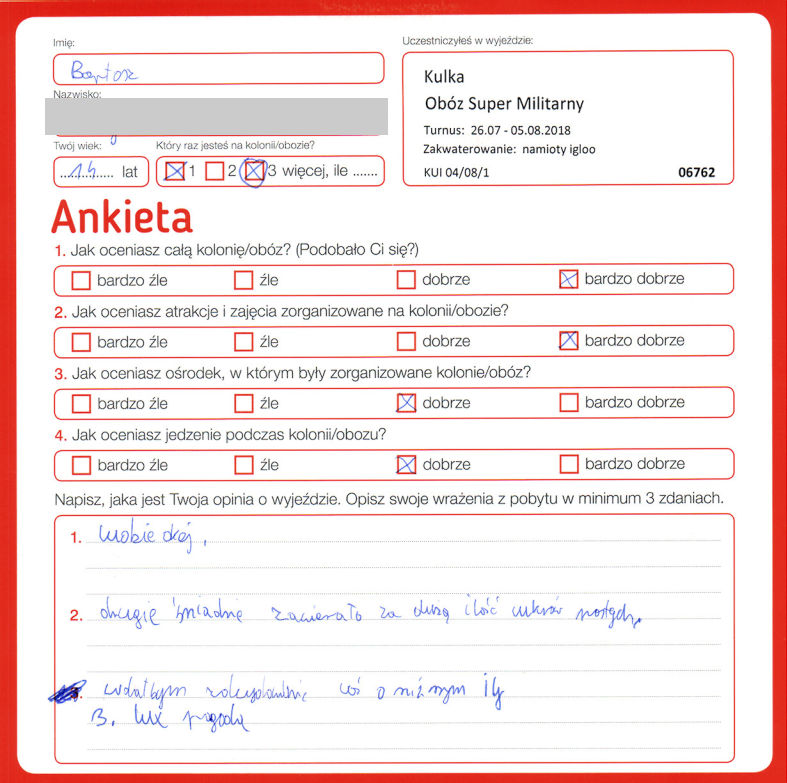 Imię:
Bartosz
Nazwisko:
Twój wiek:
14 lat
Który raz jesteś na kolonii/obozie?
1 2 3 więcej, ile .......
Uczestniczyłeś w wyjeździe:
Kulka
Obóz Super Militarny
Turnus: 26.07 - 05.08.2018
Zakwaterowanie: namioty igloo
KUI 04/08/1 06762
Ankieta
1. Jak oceniasz całą kolonię/obóz? (Podobało Ci się?)
bardzo źle źle dobrze bardzo dobrze
2. Jak oceniasz atrakcje i zajęcia zorganizowane na kolonii/obozie?
bardzo źle źle dobrze bardzo dobrze
3. Jak oceniasz ośrodek, w którym były zorganizowane kolonie/obóz?
bardzo źle źle dobrze bardzo dobrze
4. Jak oceniasz jedzenie podczas kolonii/obozu?
bardzo źle źle dobrze bardzo dobrze
Napisz, jaka jest Twoja opinia o wyjeździe. Opisz swoje wrażenia z pobytu w minimum 3 zdaniach.
1.
2. drugie śniadnie zawierało za dużą ilość cukrów
coś o niższym IG
3. lux pogoda